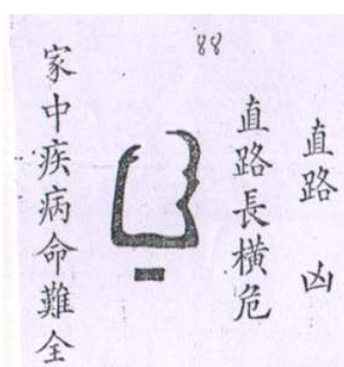 88
直路 凶
直路長橫危
家中疾病命難全